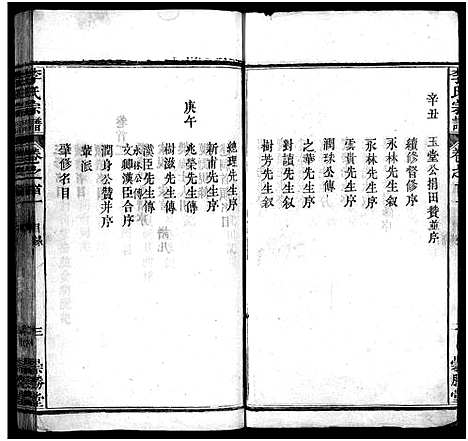 李氏宗譜
辛丑
玉堂公捐田贊並序
續修督修序
永林先生序
永林先生敘
雲貴先生敘
潤球公傳
之華先生敘
對讀先生敘
樹芳先生敘
庚午
總理先生序
新甫先生序
兆榮先生傳
樹滋先生傳
漢臣先生傳
永絲公傳
文卿漢臣合序
潤身公贊并序
華派
肇修名目
李氏宗譜
卷之首一
目錄
三